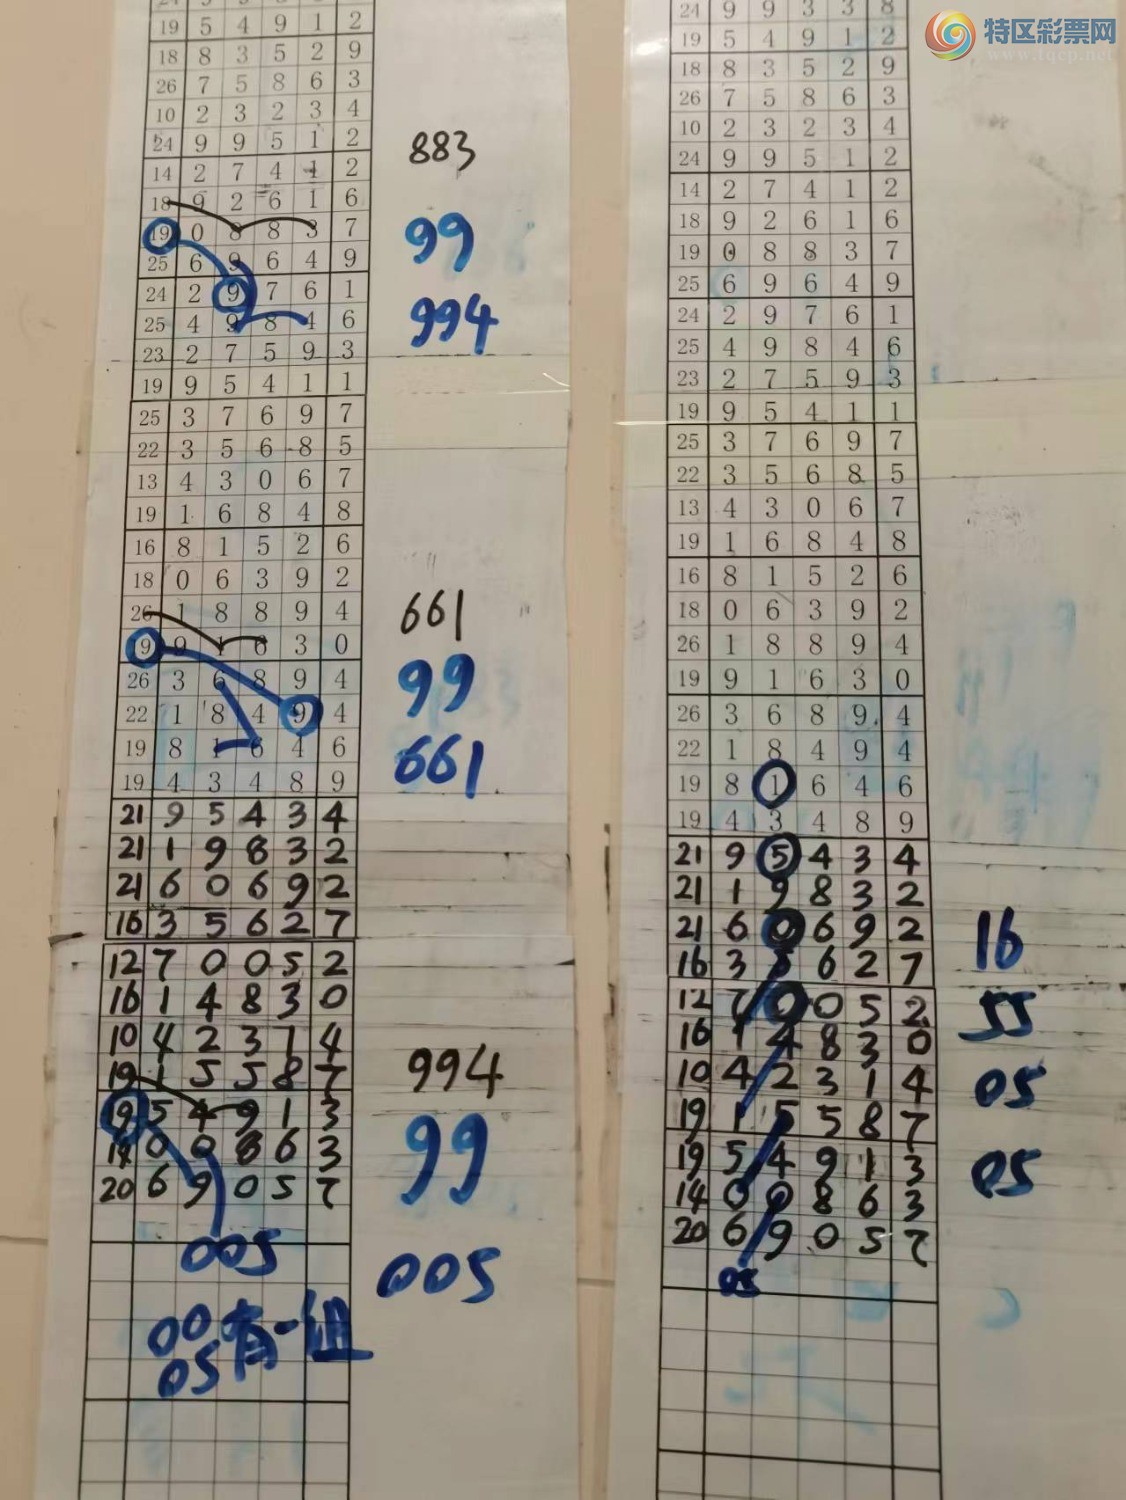 特区彩票网
www.tqcp.net
19 5 4 9 1 2
18 8 3 5 2 9
26 7 5 8 6 3
10 2 3 2 3 4
24 9 9 5 1 2
883
14 2 7 4 1 2
18 9 2 6 1 6
19 0 8 8 3 7
99
25 6 9 6 4 9
24 2 9 7 6 1
25 4 9 8 4 6
994
23 2 7 5 9 3
19 9 5 4 1 1
25 3 7 6 9 7
22 3 5 6 8 5
13 4 3 0 6 7
19 1 6 8 4 8
16 8 1 5 2 6
18 0 6 3 9 2
26 1 8 8 9 4
661
19 9 1 6 3 0
26 3 6 8 9 4
99
22 1 8 4 9 4
19 8 1 6 4 6
661
19 4 3 4 8 9
21 9 5 4 3 4
21 1 9 8 3 2
21 6 0 6 9 2
16 3 5 6 2 7
12 7 0 0 5 2
16 1 4 8 3 0
10 4 2 3 1 4
19 1 5 5 8 7
994
19 5 4 9 1 3
14 0 0 8 6 3
99
20 6 9 0 5 7
005
005
00有一组
05
24 9 9 3 3 8
19 5 4 9 1 2
18 8 3 5 2 9
26 7 5 8 6 3
10 2 3 2 3 4
24 9 9 5 1 2
14 2 7 4 1 2
18 9 2 6 1 6
19 0 8 8 3 7
25 6 9 6 4 9
24 2 9 7 6 1
25 4 9 8 4 6
23 2 7 5 9 3
19 9 5 4 1 1
25 3 7 6 9 7
22 3 5 6 8 5
13 4 3 0 6 7
19 1 6 8 4 8
16 8 1 5 2 6
18 0 6 3 9 2
26 1 8 8 9 4
19 9 1 6 3 0
26 3 6 8 9 4
22 1 8 4 9 4
19 8 1 6 4 6
19 4 3 4 8 9
21 9 5 4 3 4
21 1 9 8 3 2
21 6 0 6 9 2
16
16 3 5 6 2 7
12 7 0 0 5 2
55
16 1 4 8 3 0
10 4 2 3 1 4
05
19 1 5 5 8 7
19 5 4 9 1 3
05
14 0 0 8 6 3
20 6 9 0 5 7
05